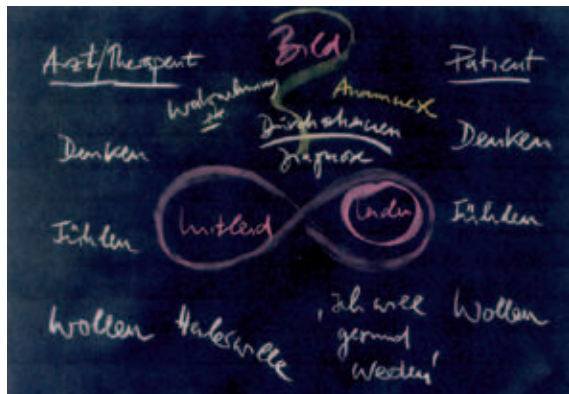 Arzt/Therapeut
Bild
Patient
Wahrnehmung
Anamnese
Durchschauen
Diagnose
Denken
Denken
Mitleid
Leiden
Fühlen
Fühlen
Wollen
Heilerwille
'Ich will
gesund
werden'
Wollen